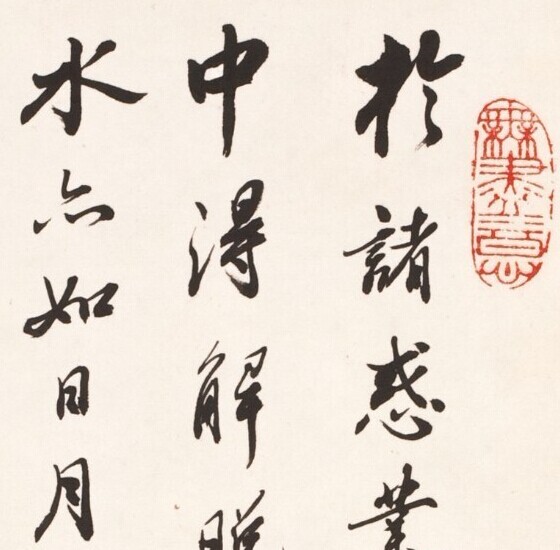 於諸惑業
中得解脫
水亦如日月
無盡意